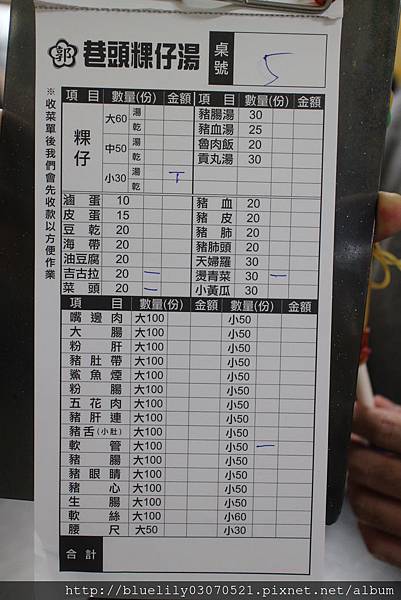 郭 巷頭粿仔湯 桌號 5
※收菜單後我們會先收款以方便作業
項目 數量(份) 金額 項目 數量(份) 金額
粿仔 大60 湯 乾 豬腸湯 30
豬血湯 25
中50 湯 乾 魯肉飯 20
貢丸湯 30
小30 湯 乾 丅
滷蛋 10 豬血 20
皮蛋 15 豬皮 20
豆乾 20 豬肺 20
海帶 20 豬肺頭 20
油豆腐 20 天婦羅 30
吉古拉 20 二 燙青菜 30 一
菜頭 20 二 小黃瓜 30
項目 數量(份) 金額 數量(份) 金額
嘴邊肉 大100 小50
大腸 大100 小50
粉肝 大100 小50
豬肚帶 大100 小50
鯊魚煙 大100 小50
粉腸 大100 小50
五花肉 大100 小50
豬肝連 大100 小50
豬舌(小肚) 大100 小50
軟管 大100 小50 一
豬腸 大100 小50
豬眼睛 大100 小50
豬心 大100 小50
生腸 大100 小50
軟絲 大100 小60
腰尺 大50 小30
合計
http://bluelily03070521.pixnet.net/album